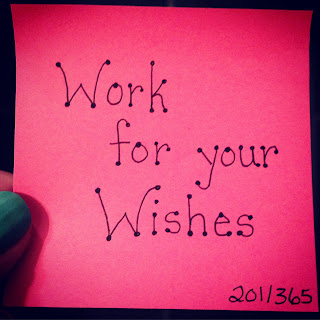 Work
for your
Wishes
201/365